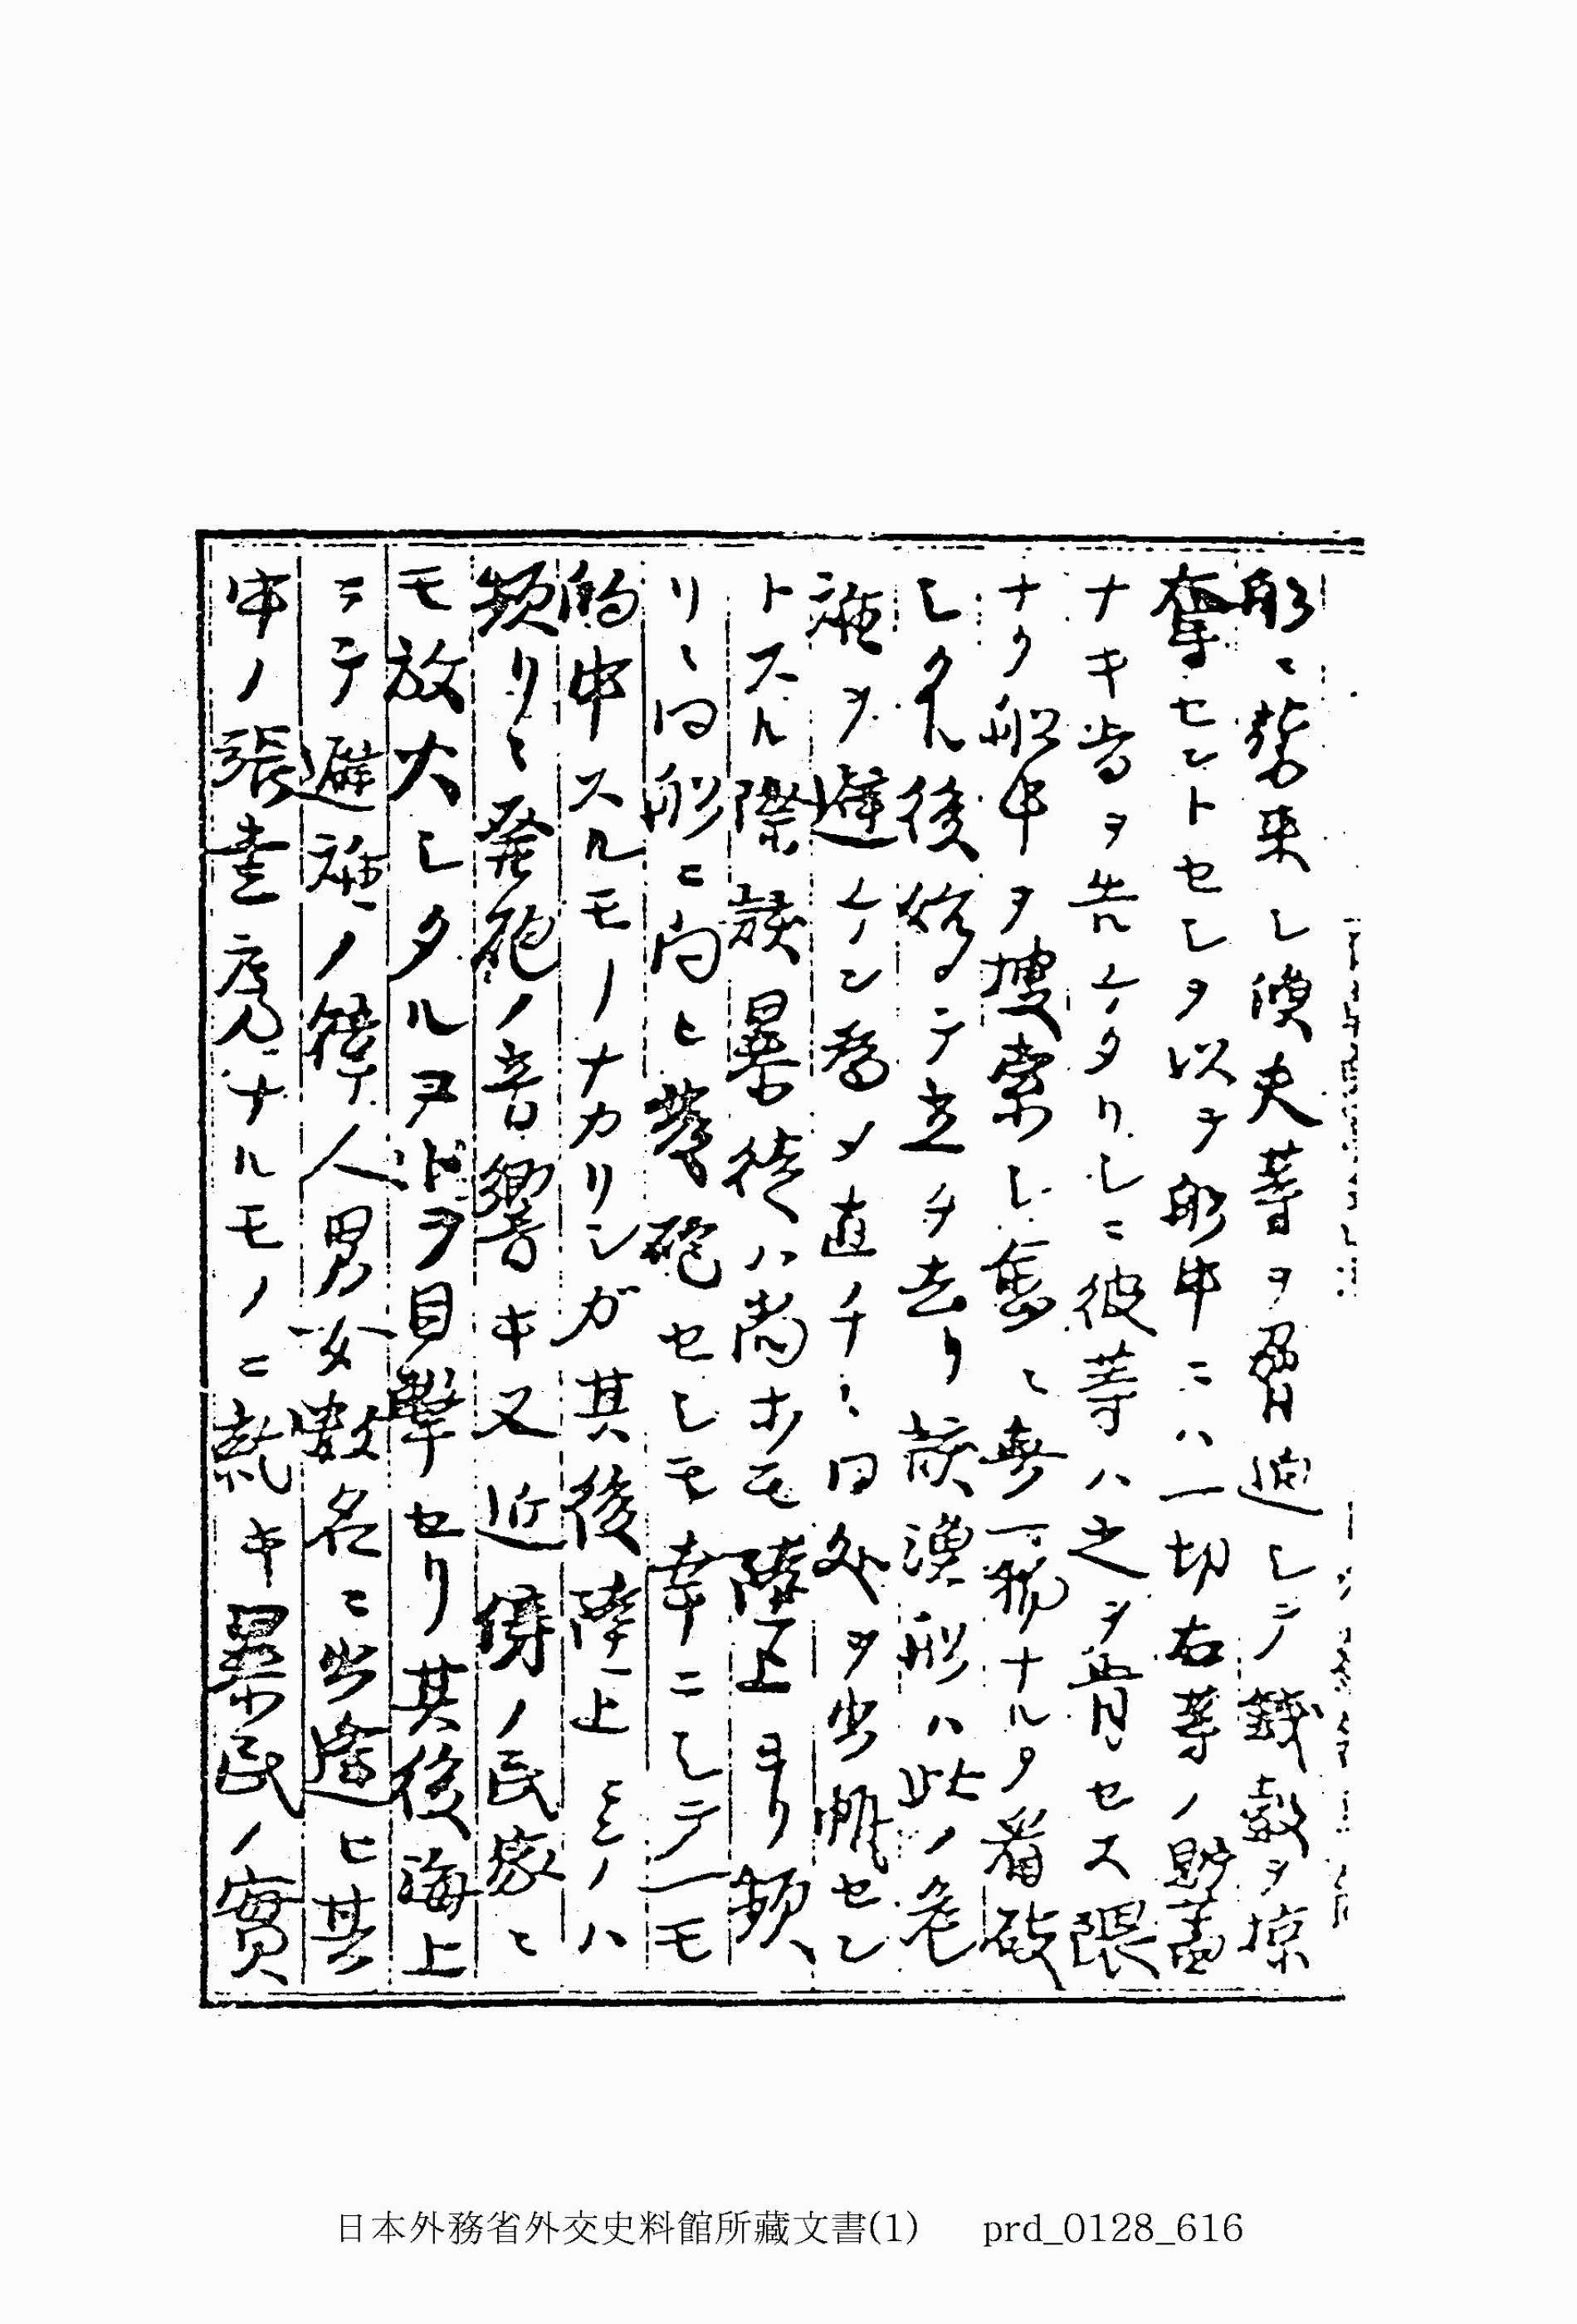 船ニ襲来シ漁夫等ヲ脅迫シテ錢穀ヲ掠
奪セントセシヲ以テ船中ニハ一切右等ノ貯蓄
ナキ旨ヲ告ケタリシニ彼等ハ之ヲ肯セス隈
ナク船中ヲ捜索シ遂ニ無一物ナルヲ看破
シタル後始テ立チ去リ該漁船ハ此ノ危
難ヲ避ケン為メ直チニ同処ヲ出帆セン
トスル際該暴徒ハ尚ホモ陸上ヨリ頻
リニ同船ニ向ヒ發砲セシモ幸ニシテ一モ
的中スルモノナカリシガ其後陸上ニハ
頻リニ発砲ノ音響キ又近傍ノ民家ニ
モ放火シタルヲ目撃セリ其後海上
ニテ避難ノ韓人男女数名ニ出逢ヒ其
中ノ張奎亮ナルモノニ就キ暴民ノ實
日本外務省外交史料館所藏文書(1) prd_0128_616